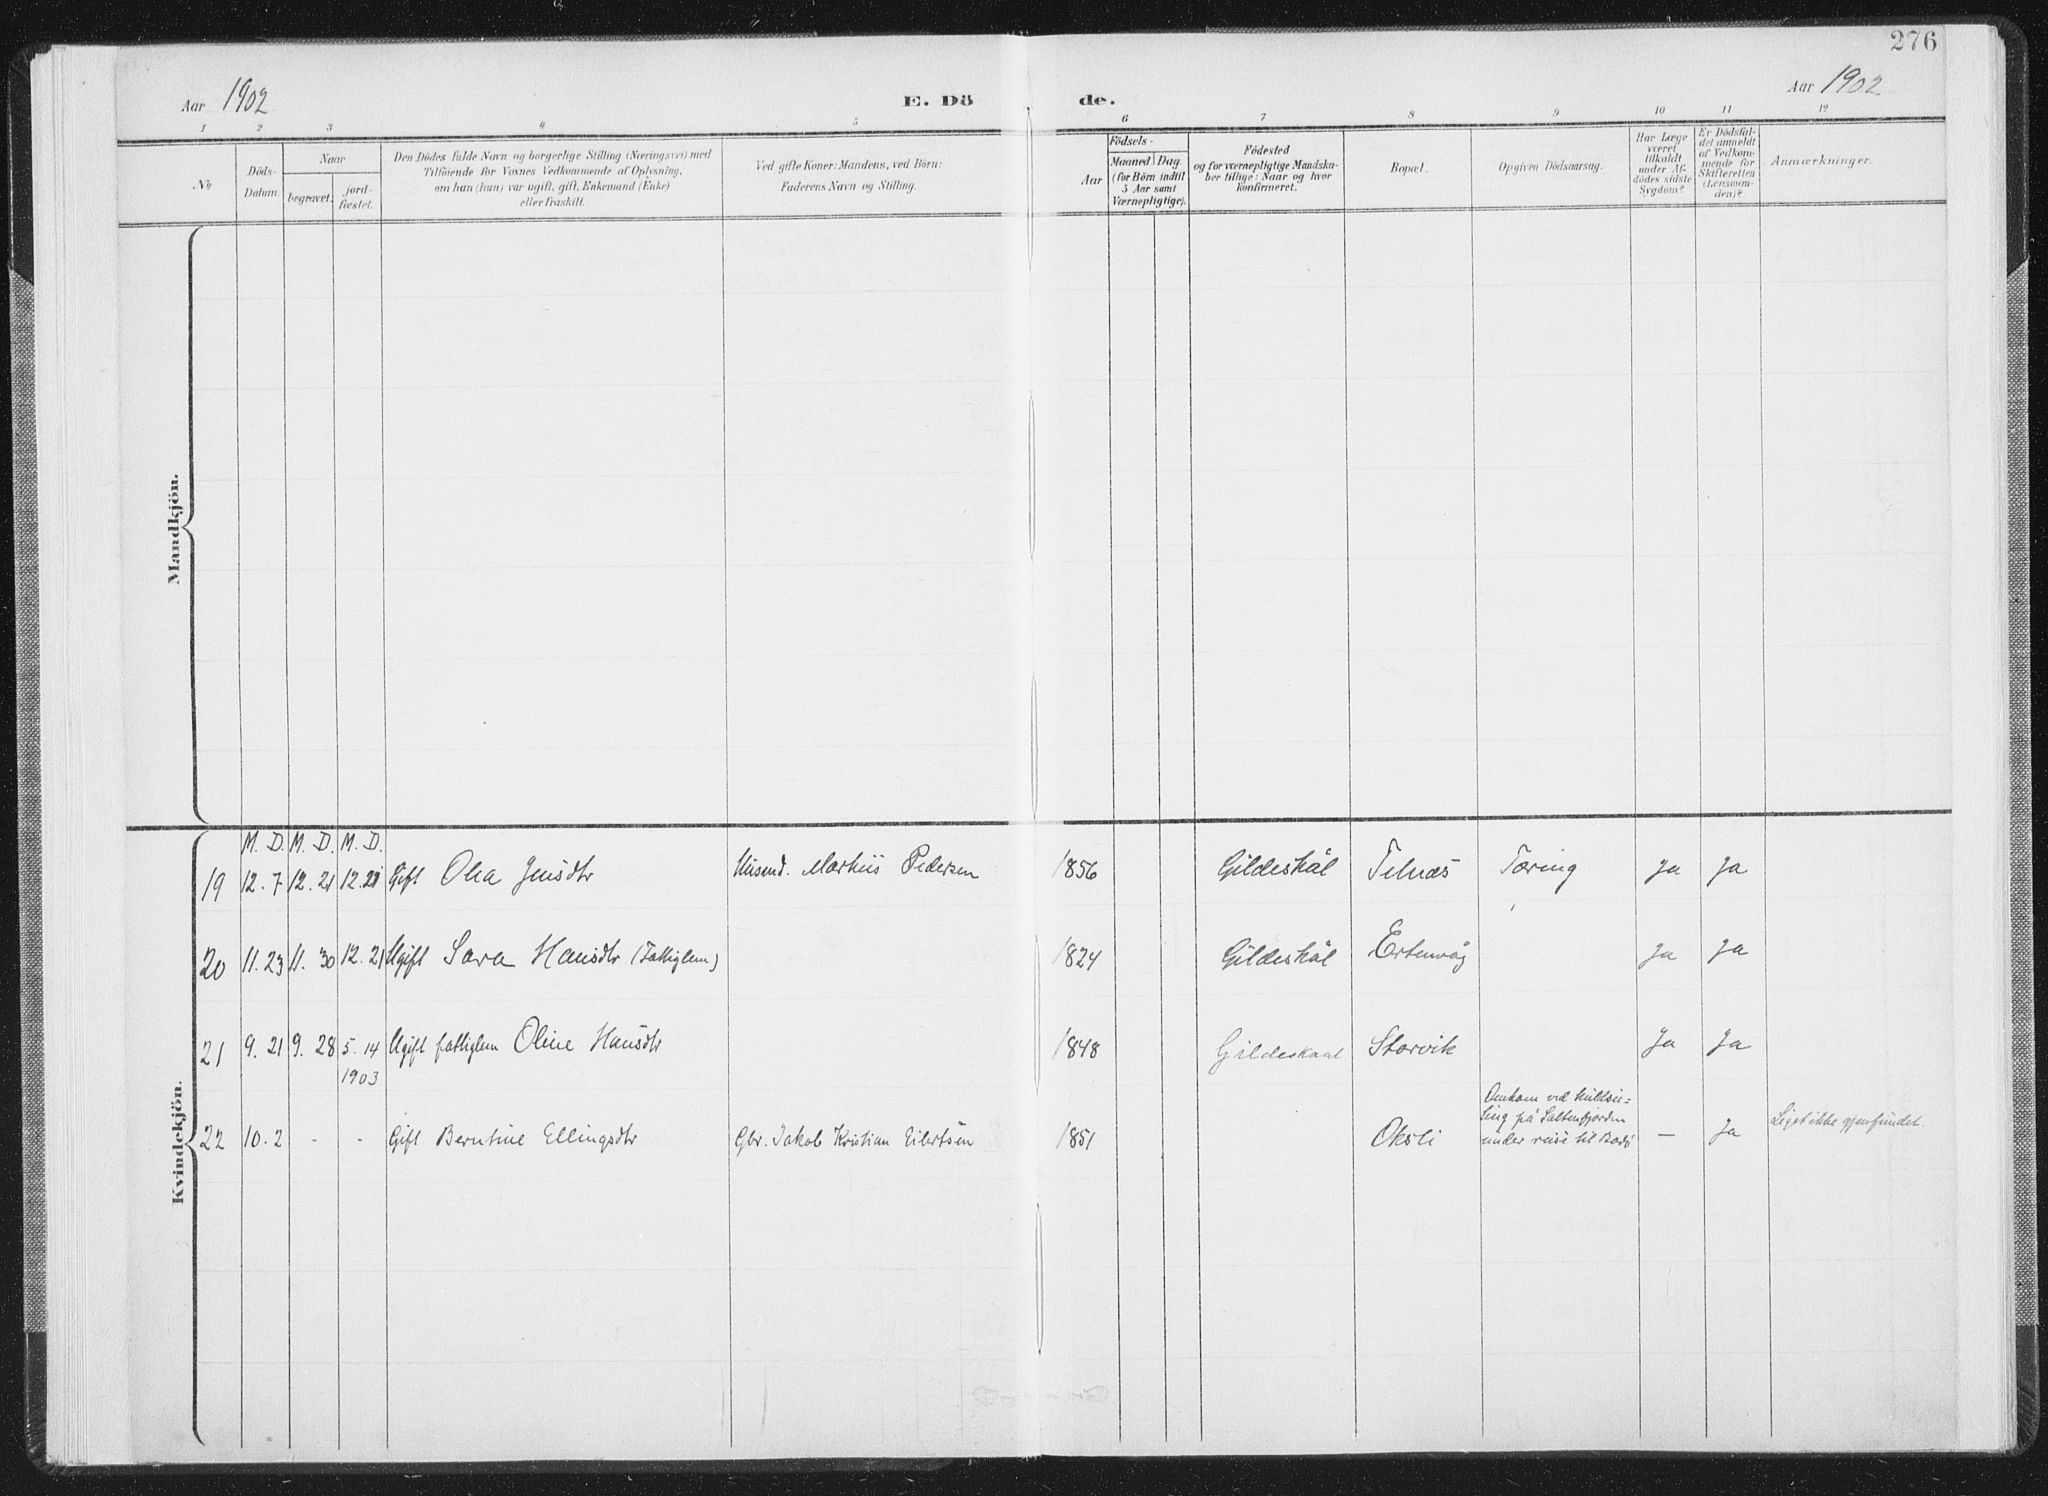 276
Aar 1902
E. Dö
de.
Aar 1902
1 2 3 4 5 6 7 8 9 10 11 12
No
Döds-
Datum.
Naar
begravet.
jord-
fæstet.
Den Dödes fulde Navn og borgerlige Stilling (Næringsvei) med
Tilföiende for Voxnes Vedkommende af Oplysning,
om han (hun) var ugift, gift, Enkemand (Enke)
eller fraskilt.
Ved gifte Koner: Mandens, ved Börn:
Faderens Navn og Stilling.
Födsels-
Aar
Maaned Dag
(for Börn indtil
5 Aar samt
Værnepligtige).
Födested
og for værnepligtige Mandska-
ber tillige: Naar og hvor
konfirmeret.
Bopæl.
Opgiven Dödsaarsag.
Har Læge
været
tilkaldt
under Af-
dödes sidste
Sygdom?
Er Dödsfal-
det anmeldt
af Vedkom-
mende for
Skifteretten
(Lensman-
den)?
Anmærkninger.
Mandkjön.
Kvindekjön.
M. D. M. D. M. D.
19 12. 7 12. 21 12. 21 Gift Olea Jensdtr Husmd. Markus Pedersen 1856 Gildeskål Telnæs Tæring Ja Ja
20 11. 23 11. 30 12. 21 Ugift Sara Hansdtr (Fattiglem) 1824 Gildeskål Ertenvåg Ja Ja
21 9. 21 9. 28 5. 14 Ugift fattiglem Oline Hansdtr 1848 Gildeskaal Storvik Ja Ja
1903
22 10. 2 - - Gift Berntine Ellingsdtr Gbr. Jakob Kristian Eilertsen 1851 Oksli
Omkom ved kuldsei-
ling på Saltenfjorden
under reise til Bodø
— Ja Liget ikke gjenfundet.